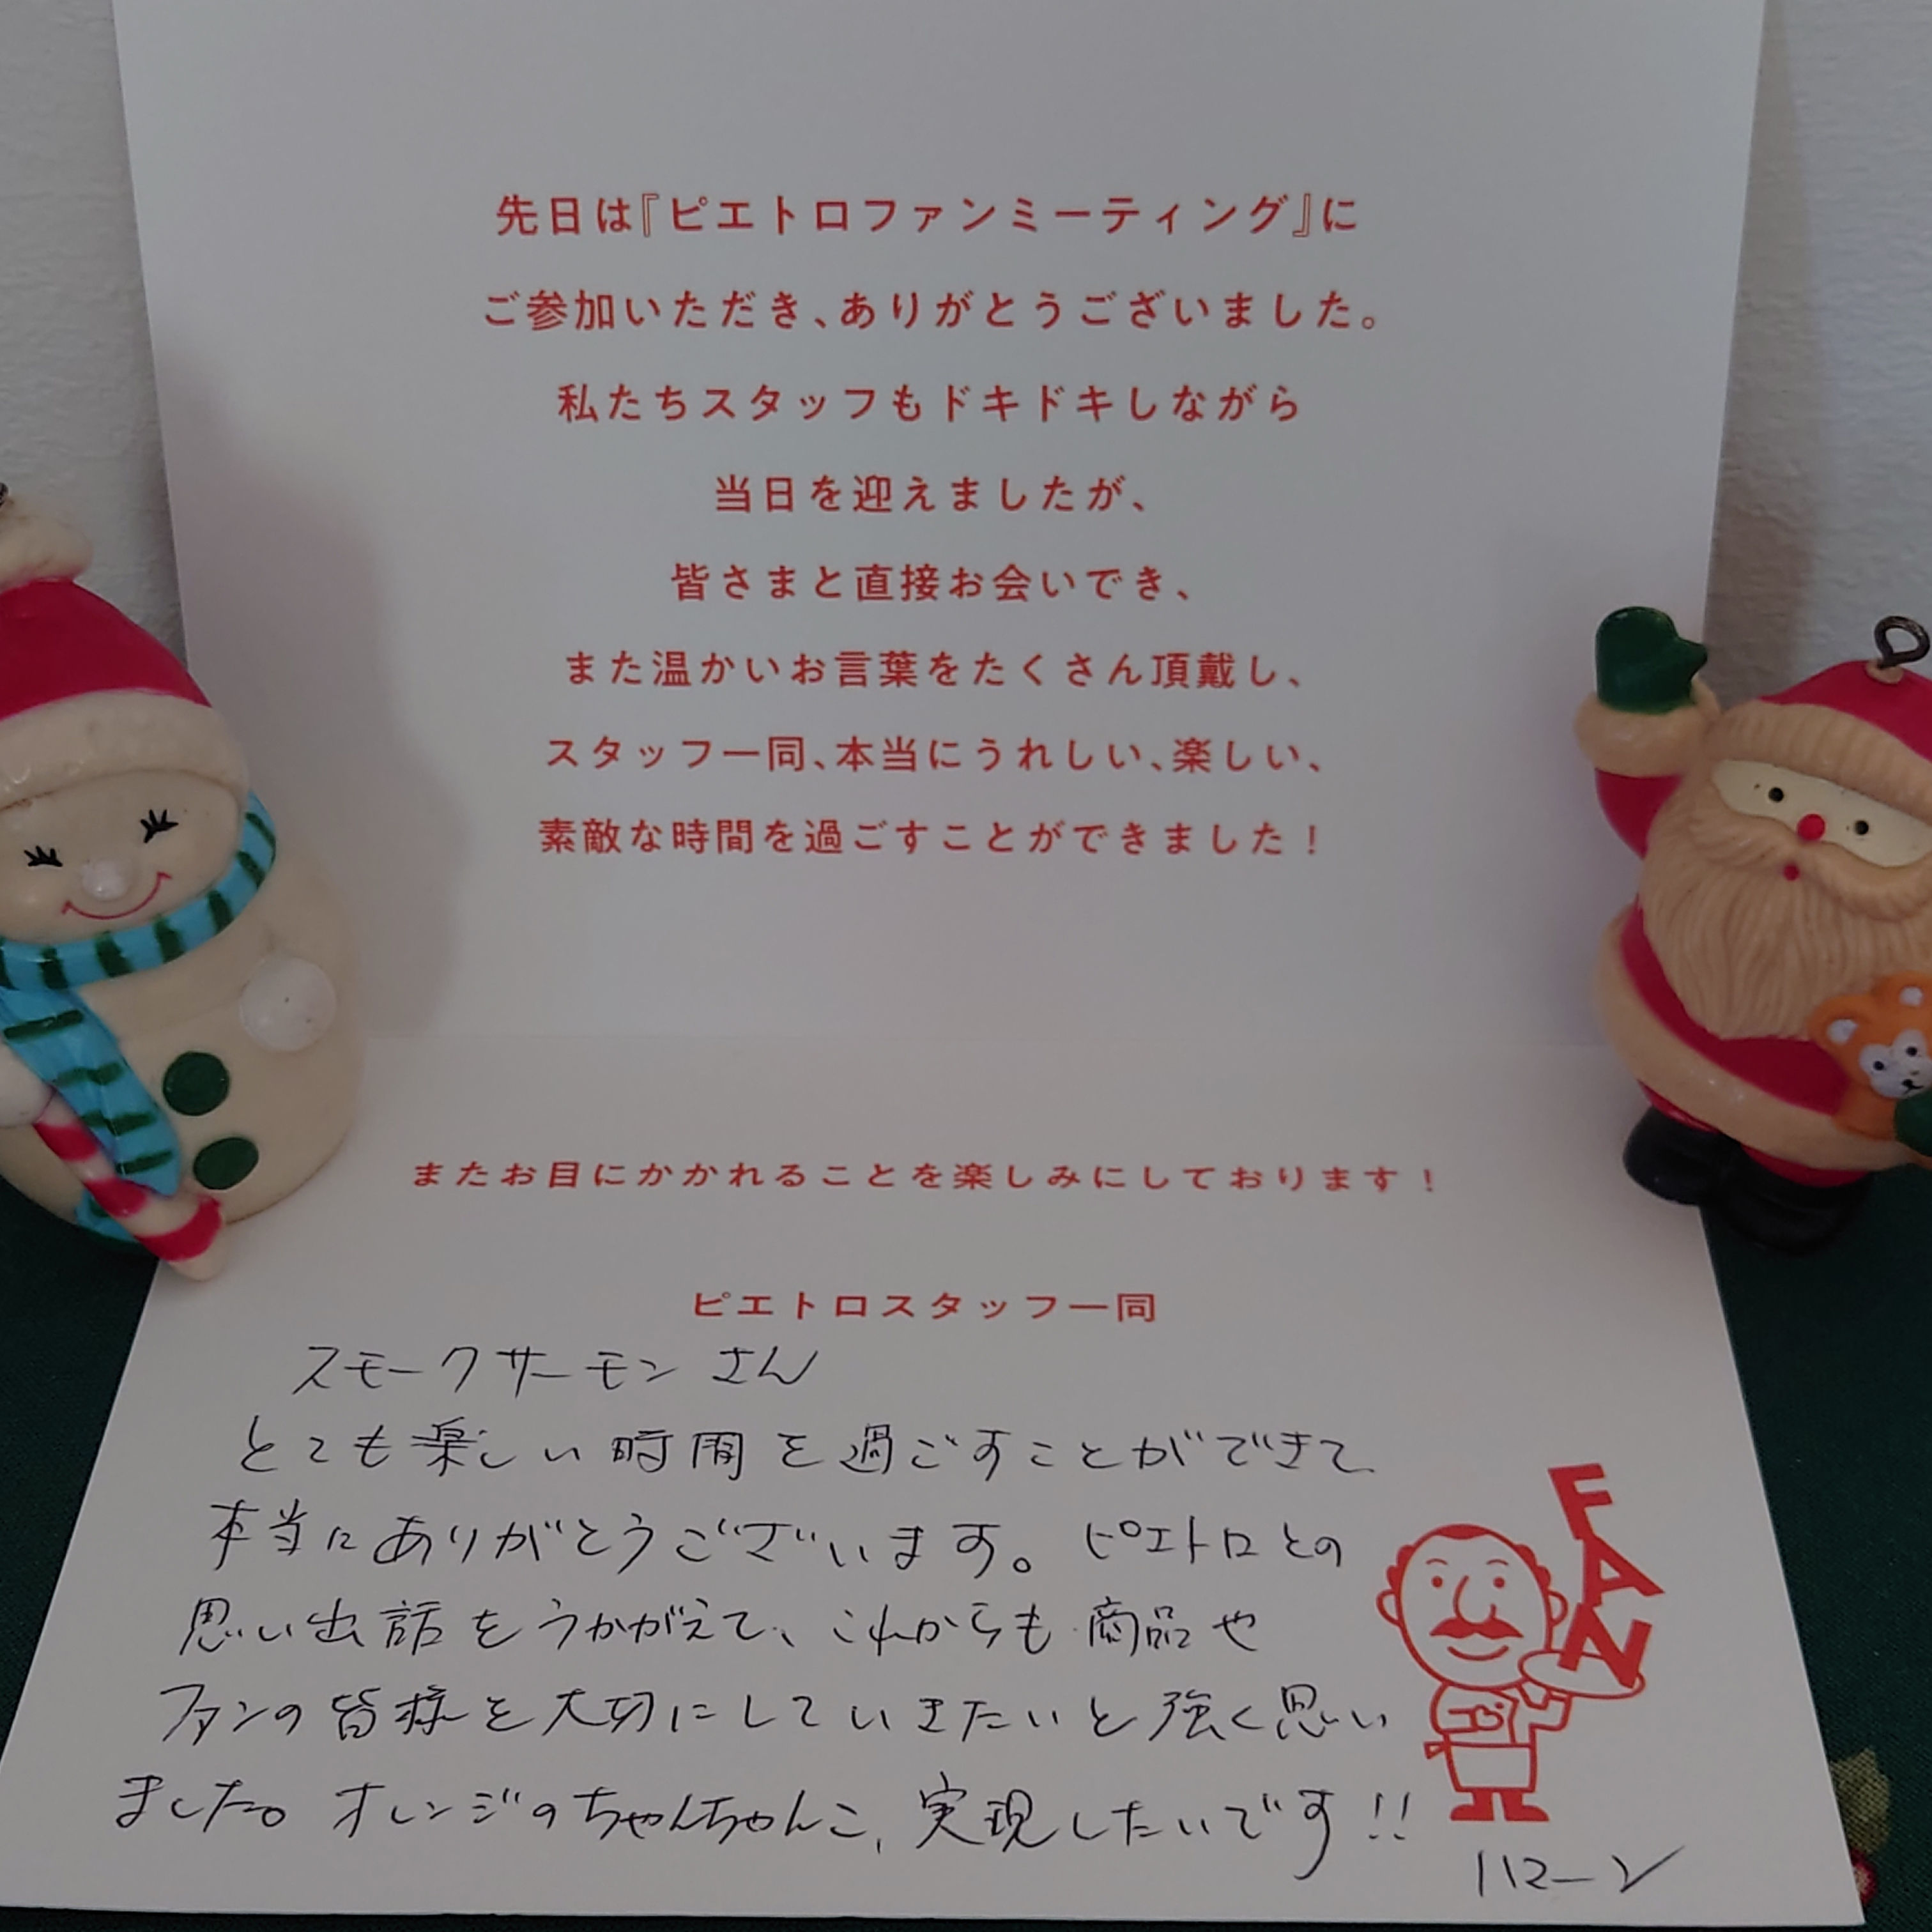 先日は『ピエトロファンミーティング』に
ご参加いただき、ありがとうございました。
私たちスタッフもドキドキしながら
当日を迎えましたが、
皆さまと直接お会いでき、
また温かいお言葉をたくさん頂戴し、
スタッフ一同、本当にうれしい、楽しい、
素敵な時間を過ごすことができました！
またお目にかかれることを楽しみにしております！
ピエトロスタッフ一同
スモークサーモンさん
とても楽しい時間を過ごすことができて
本当にありがとうございます。ピエトロとの
思い出話をうかがえて、これからも商品や
ファンの皆様を大切にしていきたいと強く思い
ました。オレンジのちゃんちゃんこ、実現したいです!!
FAN
ハマーン